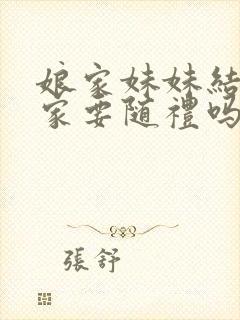 娘家妹妹結
家要随禮嗎
張舒